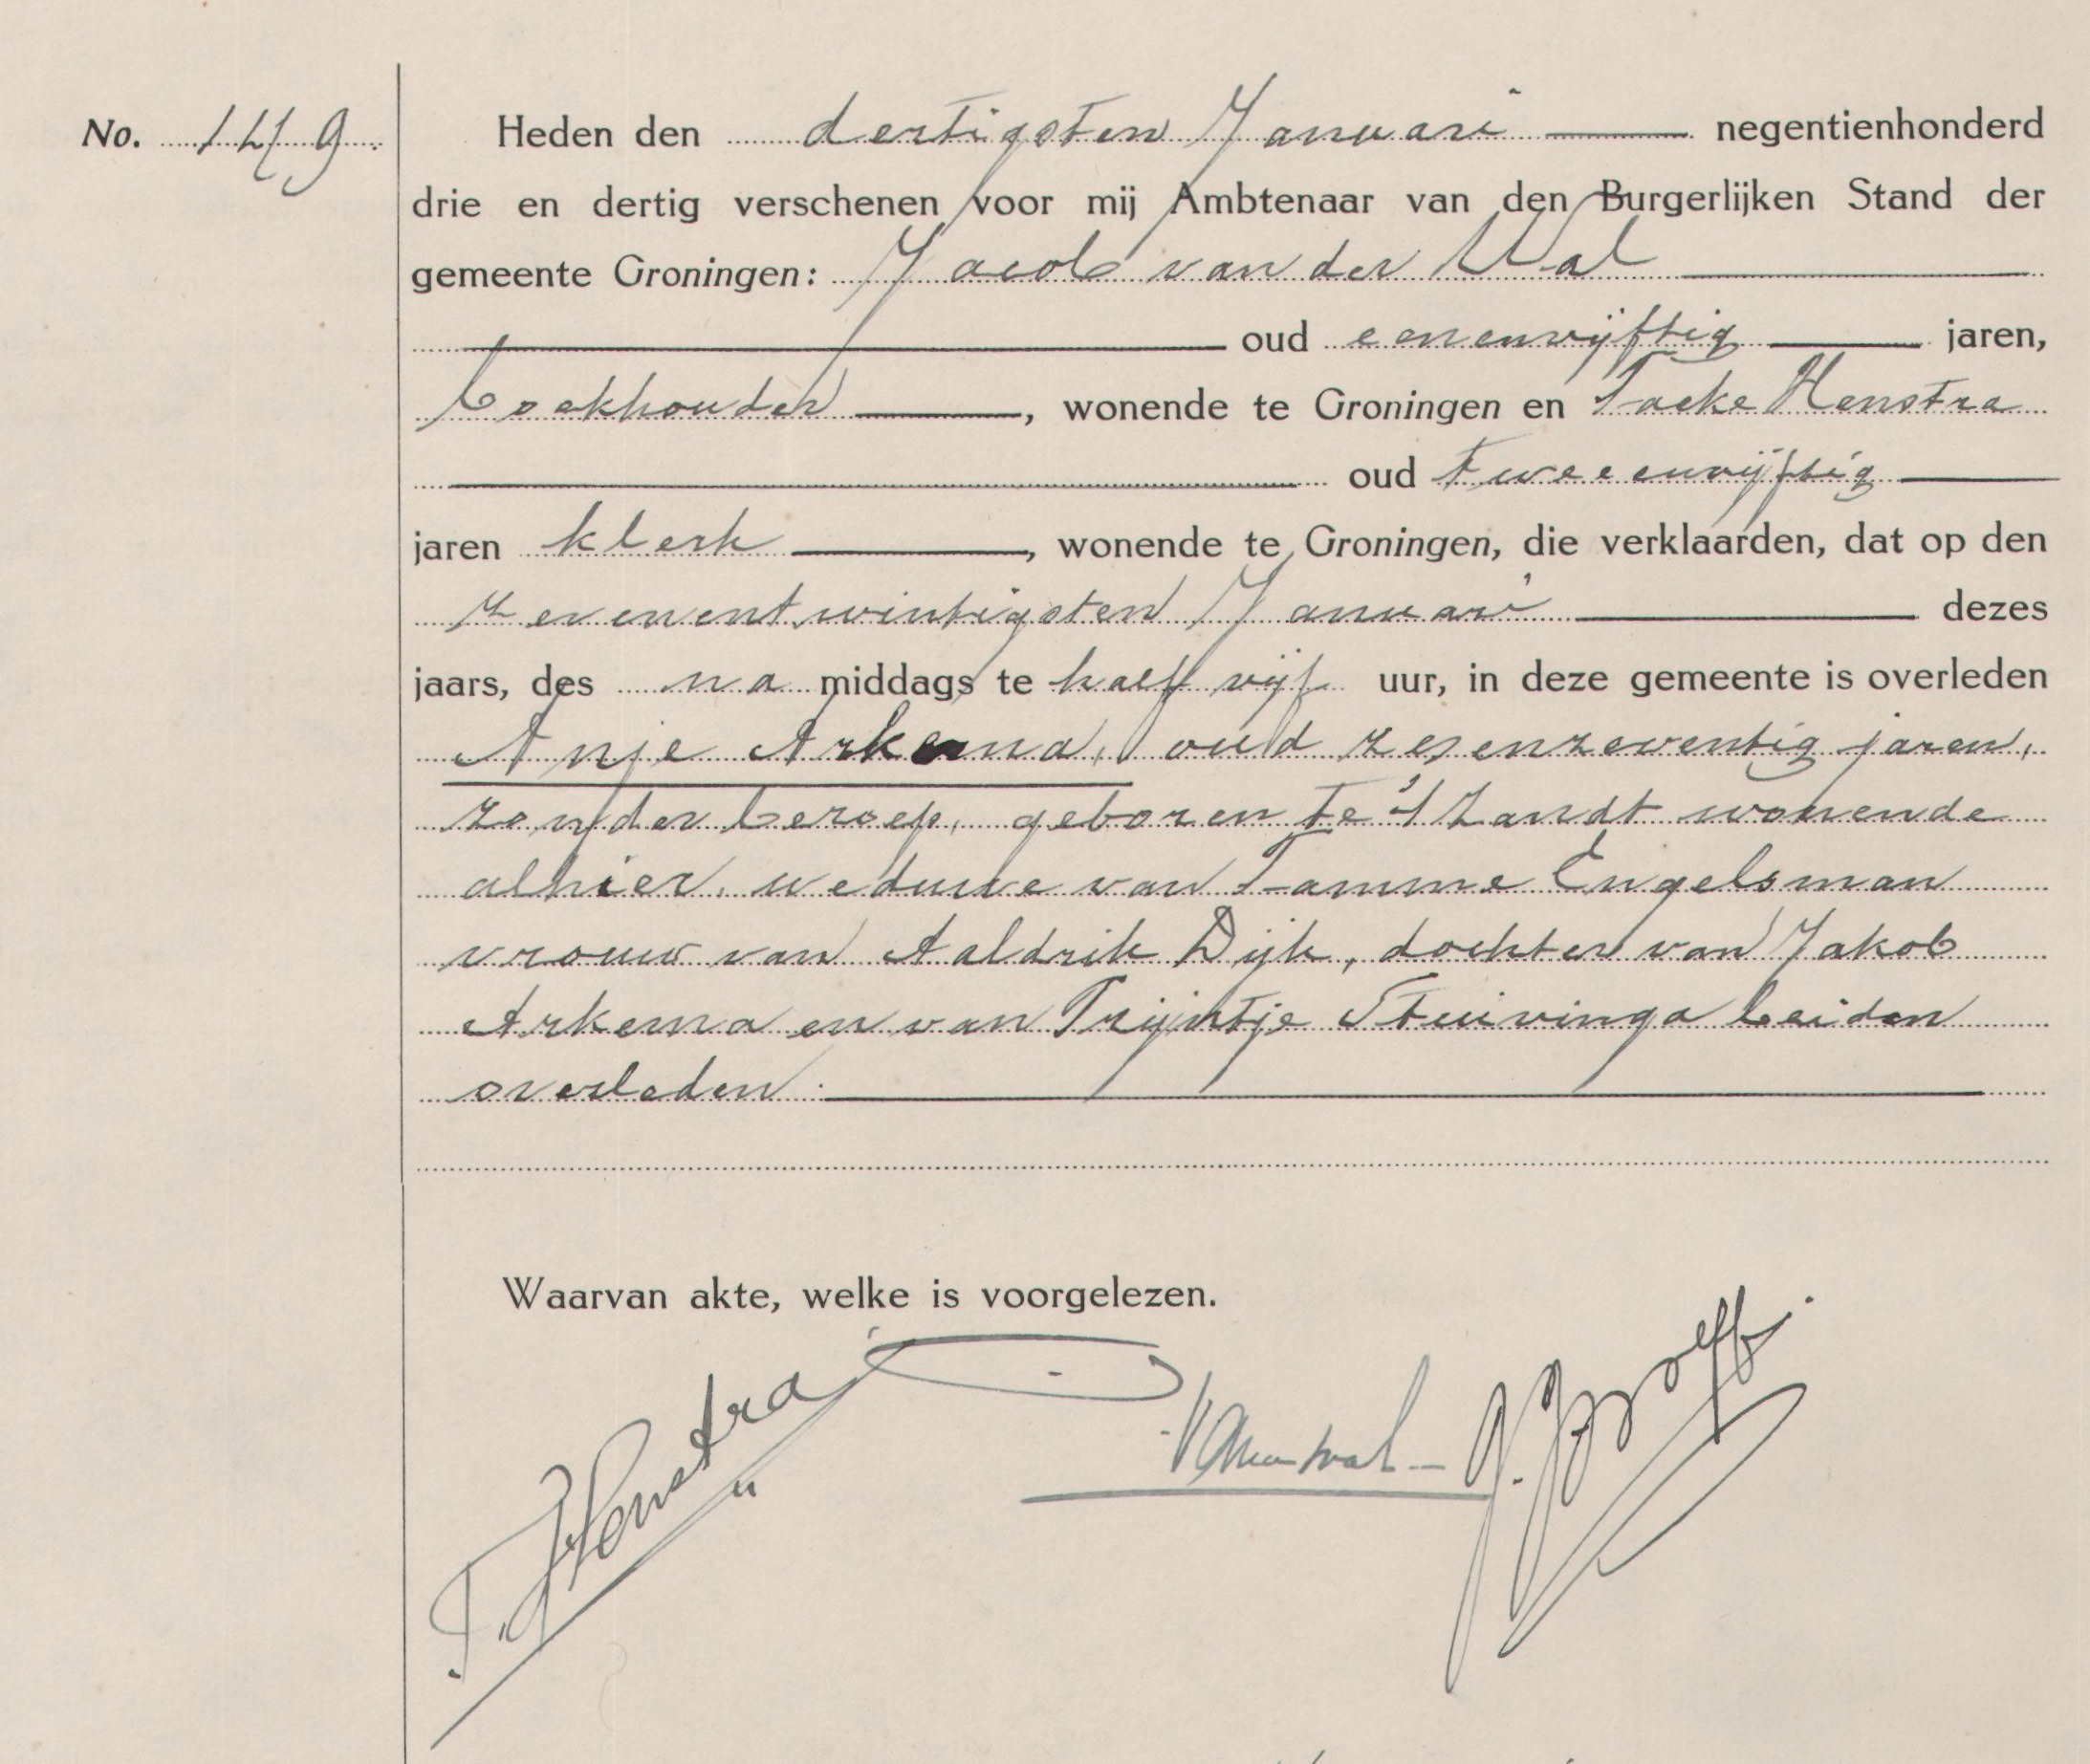 No. 149.
Heden den dertigsten Januari negentienhonderd
drie en dertig verschenen voor mij Ambtenaar van den Burgerlijken Stand der
gemeente Groningen: Jacob van der Wal
oud eenenvijftig jaren,
boekhouder, wonende te Groningen en Taeke Henstra
oud tweeenvijftig
jaren klerk, wonende te Groningen, die verklaarden, dat op den
zevenentwintigsten Januari dezes
jaars, des na middags te half vijf uur, in deze gemeente is overleden
Anje Arkema, oud zesenzeventig jaren,
zonder beroep, geboren te 't Zandt wonende
alhier, weduwe van Tamme Engelsman
vrouw van Aaldrik Dijk, dochter van Jakob
Arkema en van Trijntje Stuivinga beiden
overleden.
Waarvan akte, welke is voorgelezen.
T. Henstra